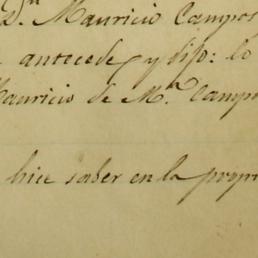 Dn. Mauricio Campos
antecede, y dijo: lo
Mauricio de M.a Campo
hice saber en la propi